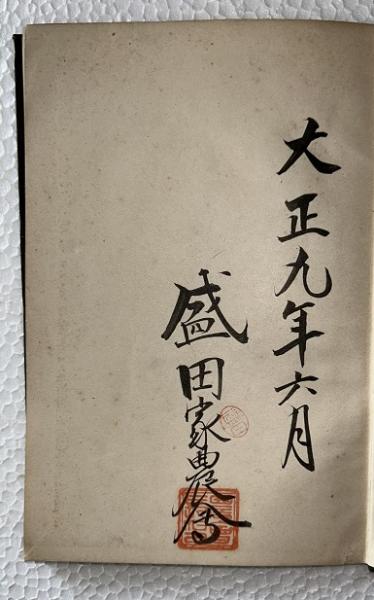 大正九年六月
盛田家農